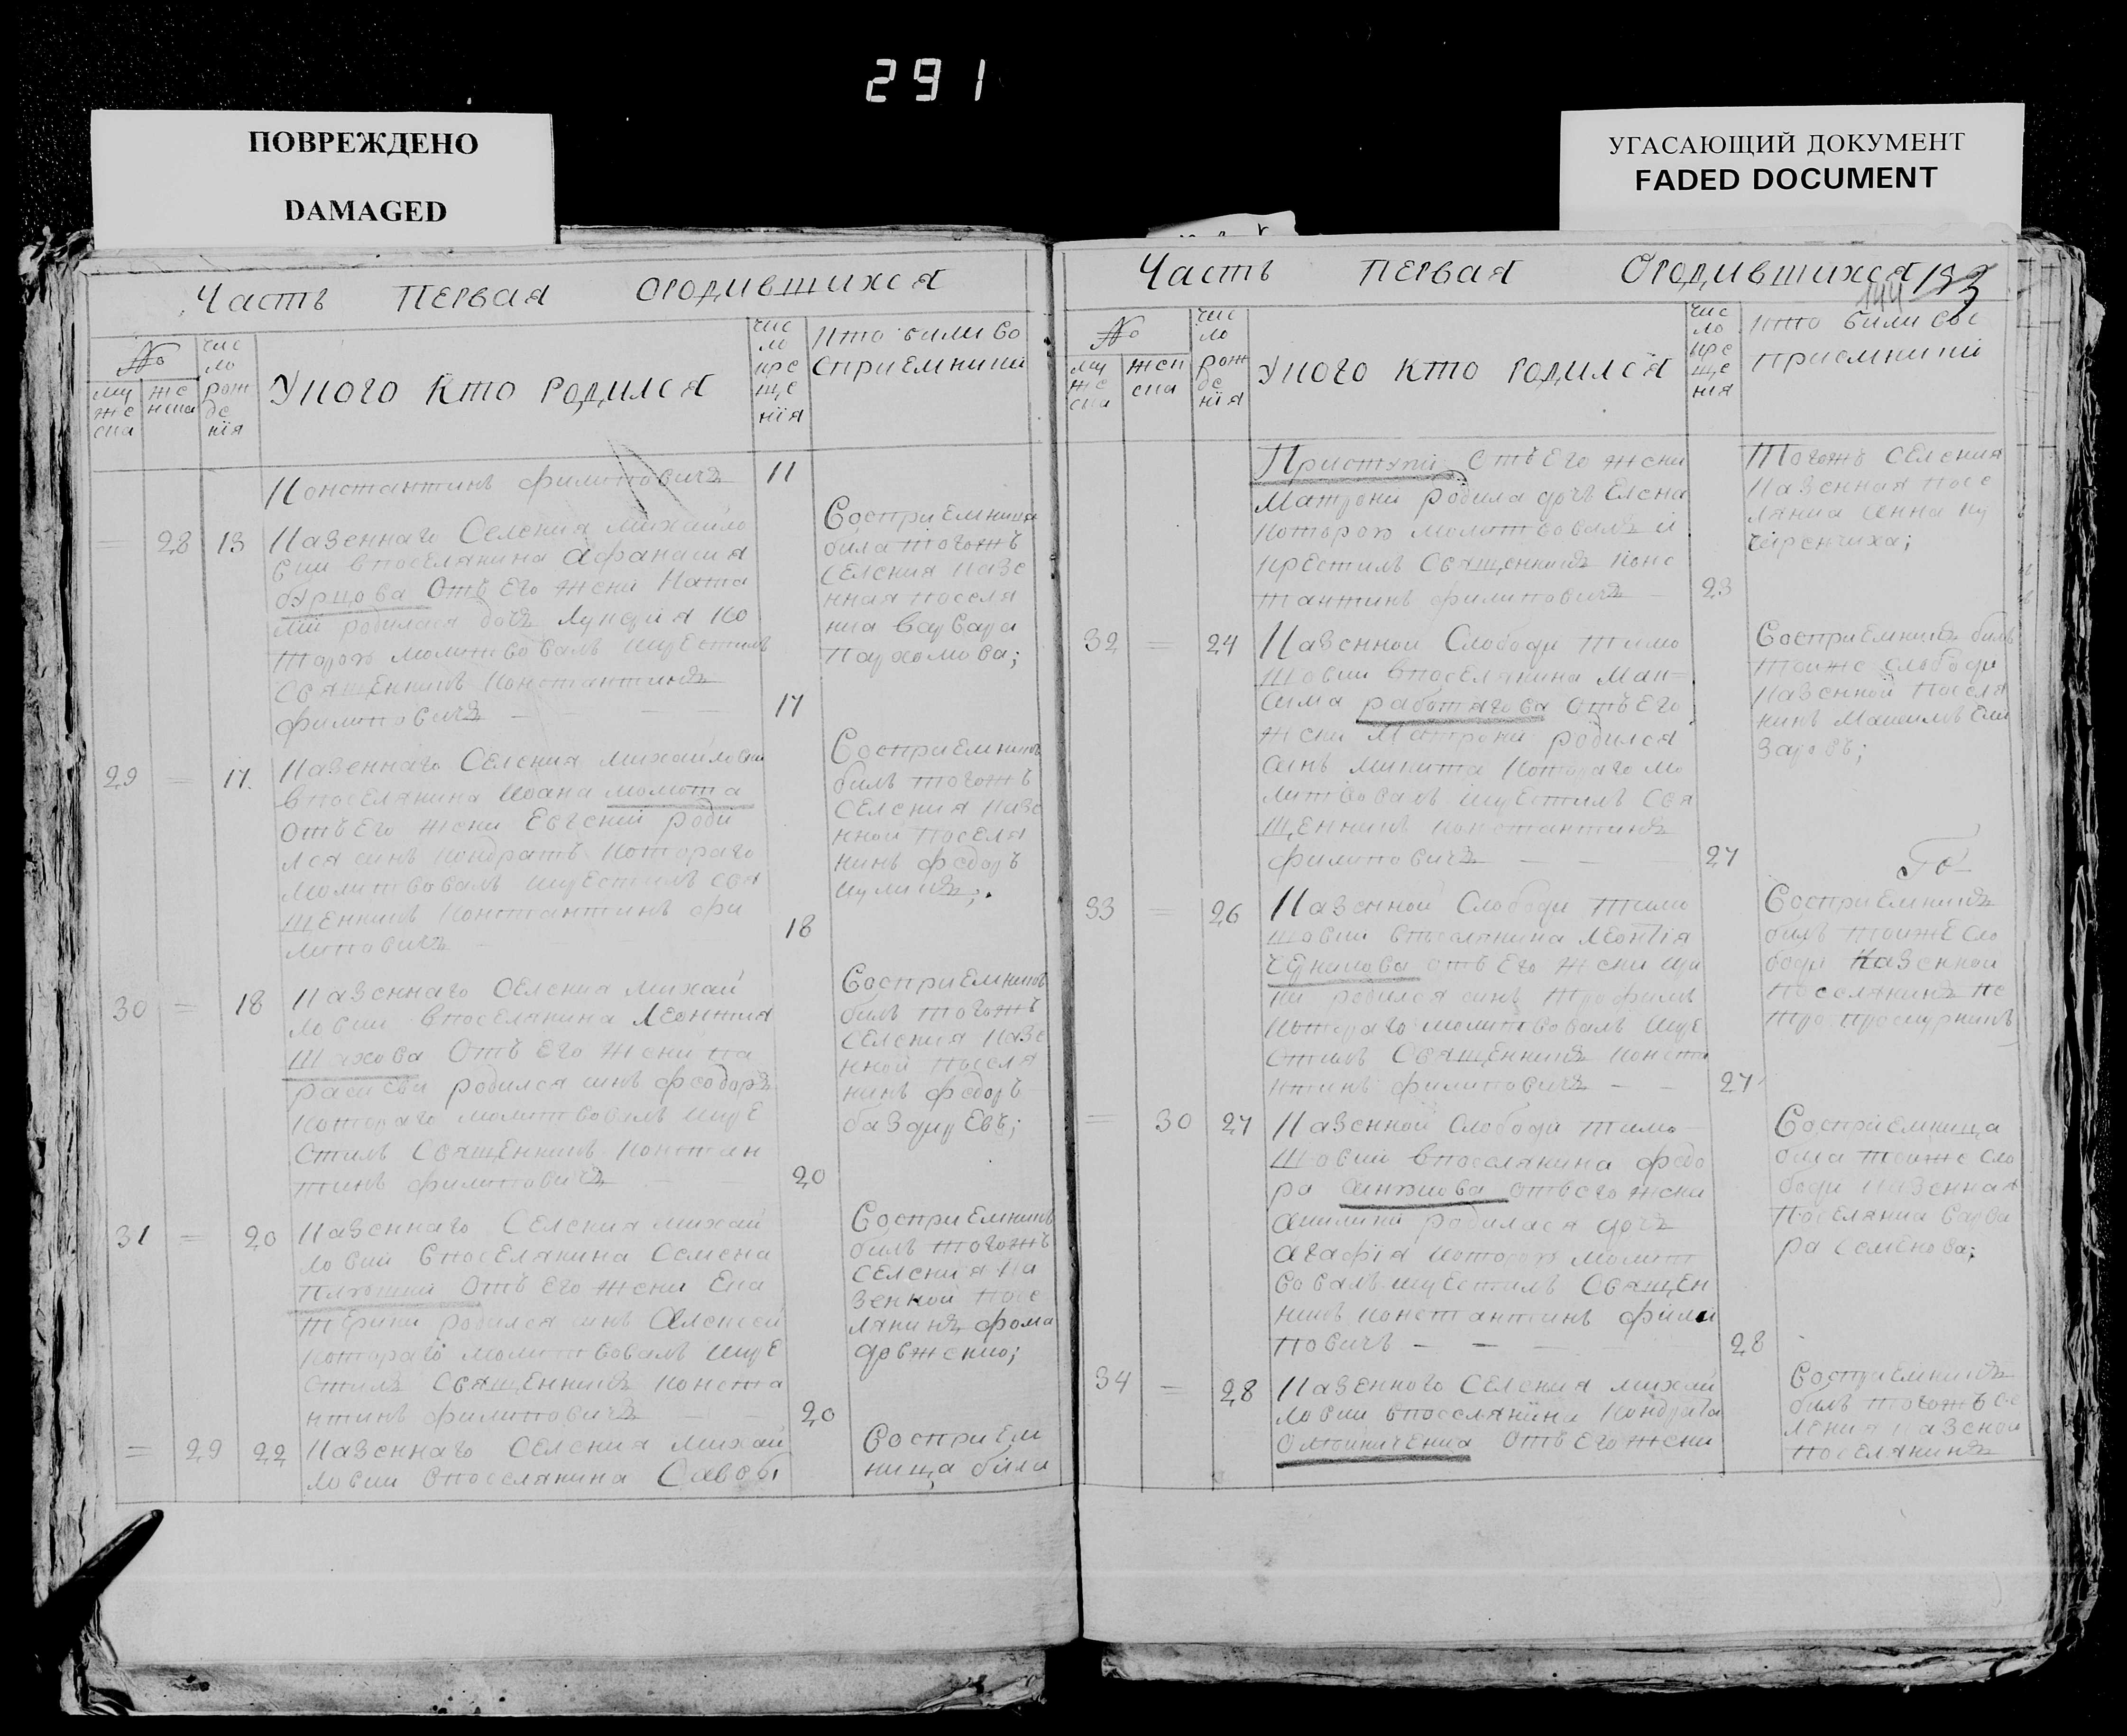 291
ПОВРЕЖДЕНО
DAMAGED
УГАСАЮЩИЙ ДОКУМЕНТ
FADED DOCUMENT
Часть первая ородившихся
№
му
жс
ска
жс
нска
чис
ло
рож
де
нїя
Укого кто родился
чис
ло
кре
ще
нїя
кто били во
сприемники
Константинъ филиповичъ
11
=
28
13
Казеннаго Селения михайло
вки впоселянина афанасия
бурцова Отъ Его жени ната
лїи родилася дочъ Лукѣия ко
торою молитвовалъ икрестилъ
Священникъ Константинъ
филиповичъ
17
Восприемница
била тогожъ
селения казе
нная поселя
нка варвара
пархомова;
29
=
17.
Казеннаго Селения михайловки
впоселянина иоана момота
отъ Его жени Евгении роди
лся синъ кондратъ котораго
молитвовалъ икрестилъ свя
щенникъ константинъ фи
липовичъ
18
Восприемникъ
билъ тогожъ
селения казе
нной поселя
нинъ федоръ
30
=
18
Казеннаго селения михай
ловки впоселянина леонтия
Шахова Отъ Его жени па
раскеви родился синъ феодоръ
котораго молитвовалъ икре
стилъ Священникъ констан
тинъ филиповичъ
20
Восприемникъ
билъ тогожъ
селения казе
нной поселя
нинъ федоръ
31
=
20
Казеннаго Селения михай
ловки впоселянина семена
Отъ Его жени Ека
терини родился синъ Алексей
котораго молитвовалъ икре
стилъ Священникъ конста
нтинъ филиповичъ
20
Восприемникъ
билъ тогожъ
селения ка
зенной посе
лянинъ фома
довженко;
=
29
22
Казеннаго Селения михай
ловки впоселянина Саво
Восприем
ница била
Часть первая Ородившихся 193
144
№
му
жс
ска
жен
ска
чис
ло
рож
де
нїя
Укого кто родился
чис
ло
кре
ще
нїя
кто били вос
приемники
Приступи Отъ Его жени
Матрони родила дочъ Елена
которою молитвовалъ и
крестилъ Священникъ конс
тантинъ филиповичъ
23
Тогожъ селения
казенная посе
лянка анна
32
=
24
Казенной Слободи тимо
шовки впоселянина Мак=
сима работягова отъ Его
жени Матрони родился
синъ никита котораго мо
литвовалъ икрестилъ свя
щенникъ константинъ
филиповичъ
27
Восприемникъ билъ
тоиже слободи
казенной поселя
нинъ Максимъ Ели
заровъ;
33
=
26
Казенной Слободи тимо
шовки впоселянина леонтїя
отъ Его жени
родился синъ трофимъ
котораго молитвовалъ икре
стилъ Священникъ конста
нтинъ филиповичъ
27
Восприемникъ
билъ тоиже сло
боди казенной
поселянинъ пе
тро проскурнинъ
=
30
27
Казенной слободи тимо
шовки впоселянина федо
ра отъего жени
Акилини родилася дочъ
агафїя которою молит
вовалъ икрестилъ Священ
никъ константинъ фили
повичъ
28
Восприемница
била тоиже сло
боди казенная
поселянка варва
ра семенова;
34
=
28
Казенного селения михай
ловки впоселянина кондрата
отъ Его жени
Восприемникъ
билъ тогожъ се
ления казеной
поселянинъ